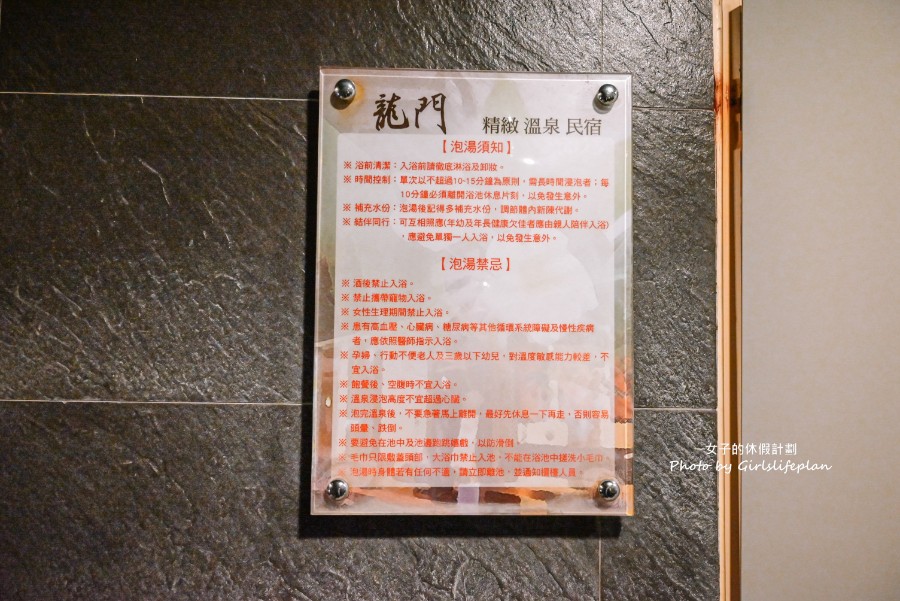 龍門 精緻 溫泉 民宿
【泡湯須知】
※ 浴前清潔：入浴前請徹底淋浴及卸妝。
※ 時間控制：單次以不超過10-15分鐘為原則，需長時間浸泡者；每
10分鐘必須離開浴池休息片刻，以免發生意外。
※ 補充水份：泡湯後記得多補充水份，調節體內新陳代謝。
※ 結伴同行：可互相照應(年幼及年長健康欠佳者應由親人陪伴入浴)
，應避免單獨一人入浴，以免發生意外。
【泡湯禁忌】
※ 酒後禁止入浴。
※ 禁止攜帶寵物入浴。
※ 女性生理期間禁止入浴。
※ 患有高血壓、心臟病、糖尿病等其他循環系統障礙及慢性疾病
者，應依照醫師指示入浴。
※ 孕婦、行動不便老人及三歲以下幼兒，對溫度敏感能力較差，不
宜入浴。
※ 飽餐後、空腹時不宜入浴。
※ 溫泉浸泡高度不宜超過心臟。
※ 泡完溫泉後，不要急著馬上離開，最好先休息一下再走，否則容易
頭暈、跌倒。
※ 要避免在池中及池邊跑跳嬉戲，以防滑倒。
※ 毛巾只限敷蓋頭部，大浴巾禁止入池，不能在浴池中搓洗小毛巾。
※ 泡湯時身體若有任何不適，請立即離池，並通知櫃檯人員。
女子的休假計劃
Photo by Girlslifeplan